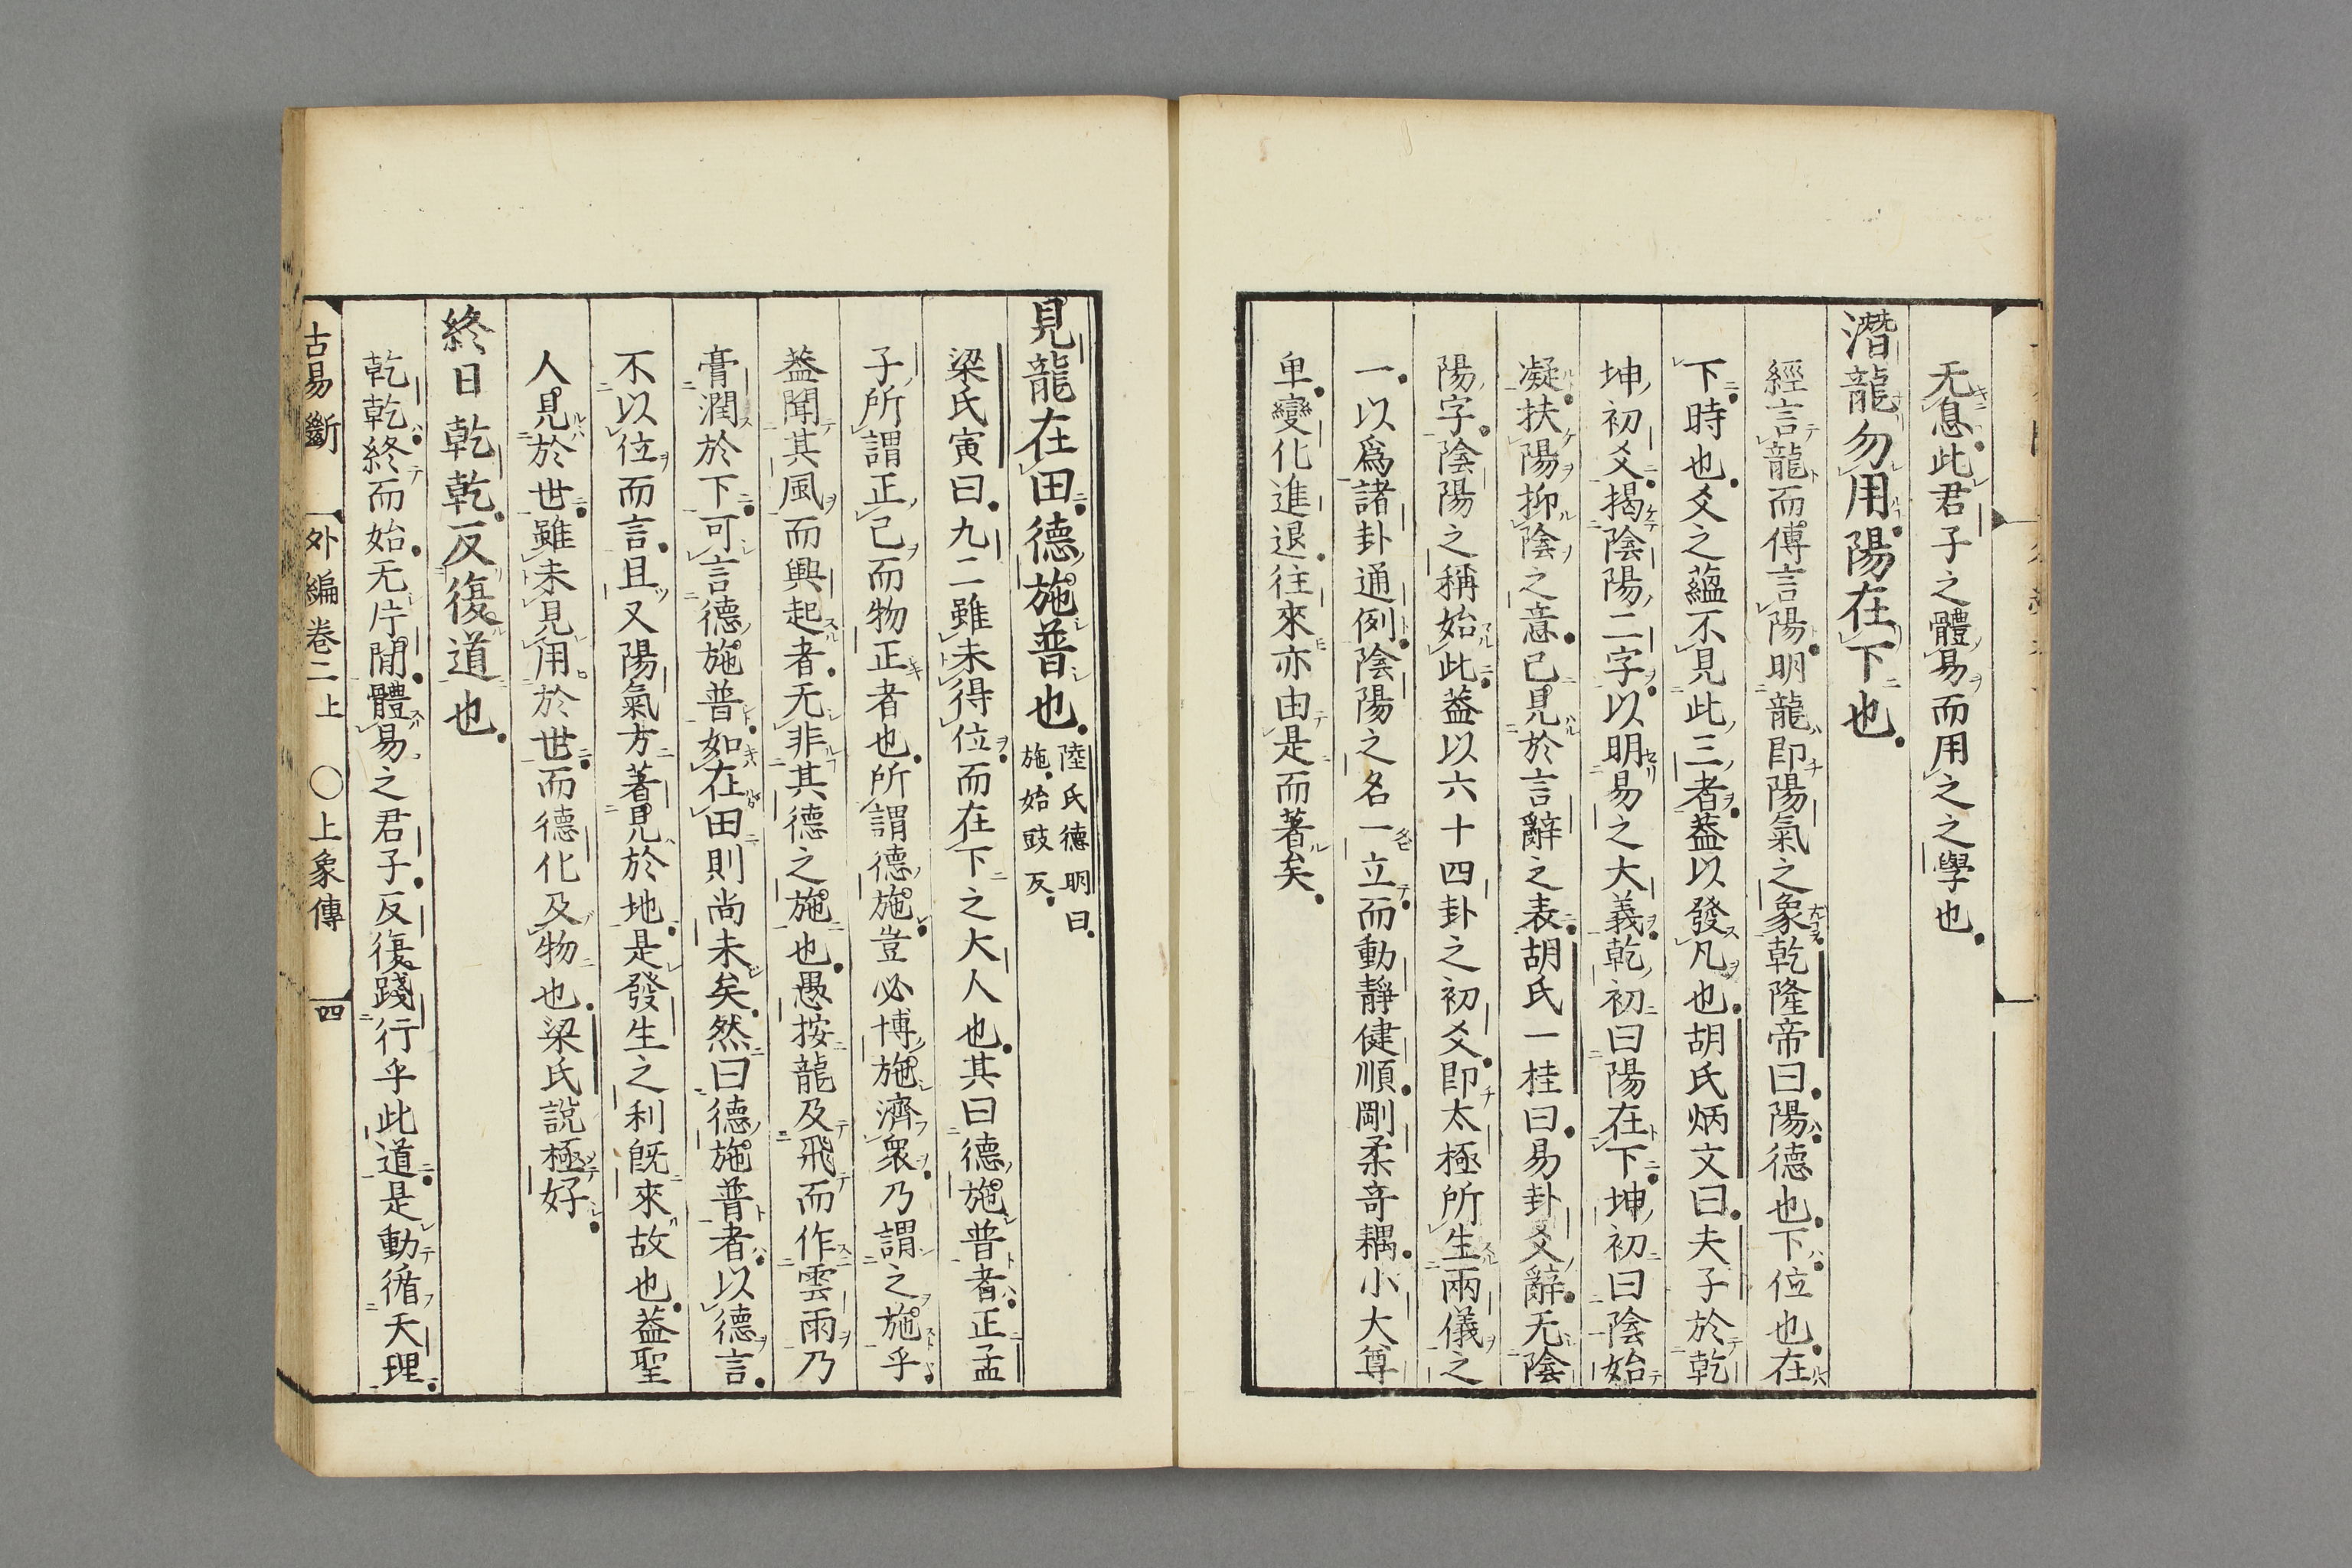 无息此君子之體易而用之之學也
潛龍勿用陽在下也
經言龍而傳言陽明龍即陽氣之象乾隆帝曰陽德也下位也在
下時也爻之蘊不見此三者葢以發凡也胡氏炳文曰夫子於乾
坤初爻揭陰陽二字以明易之大義乾初曰陽在下坤初曰陰始
凝扶陽抑陰之意已見於言辭之表胡氏一桂曰易卦爻辭无陰
陽字陰陽之稱始此葢以六十四卦之初爻即太極所生兩儀之
一以爲諸卦通例陰陽之名一立而動靜健順剛柔奇耦小大尊
卑變化進退往來亦由是而著矣
見龍在田德施普也 陸氏德明曰
施始豉反
梁氏寅曰九二雖未得位而在下之大人也其曰德施普者正孟
子所謂正己而物正者也所謂德施豈必博施濟衆乃謂之施乎
葢聞其風而興起者无非其德之施也愚按龍及飛而作雲雨乃
膏潤於下可言德施普如在田則尚未矣然曰德施普者以德言
不以位而言且又陽氣方著見於地是發生之利既來故也葢聖
人見於世雖未見用於世而德化及物也梁氏說極好
終日乾乾反復道也
乾乾終而始无片閒體易之君子反復踐行乎此道是動循天理
古易斷 外編卷二上 〇上象傳 四